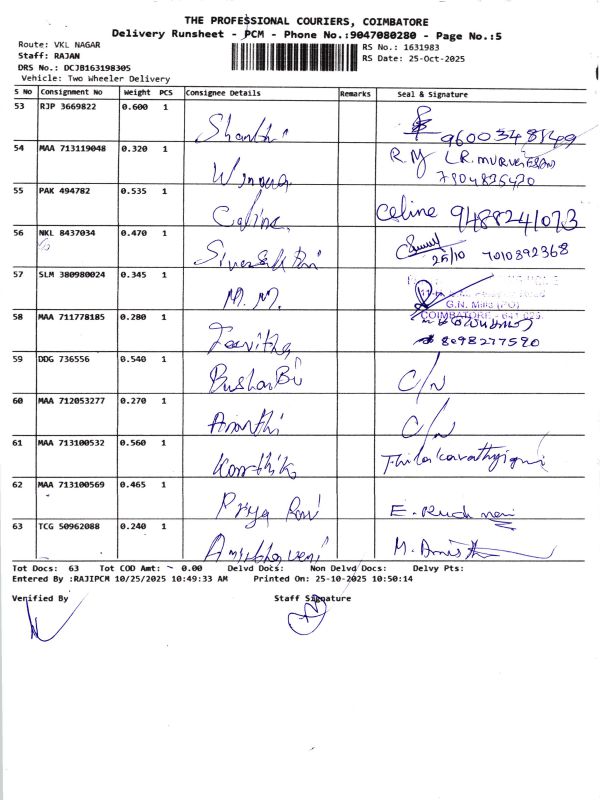 THE PROFESSIONAL COURIERS, COIMBATORE
Delivery Runsheet - PCM - Phone No.:9047080280 - Page No.:5
Route: VKL NAGAR
RS No.: 1631983
Staff: RAJAN
RS Date: 25-Oct-2025
DRS No.: DCJB163198305
Vehicle: Two Wheeler Delivery
S No Consignment No Weight PCS Consignee Details Remarks Seal & Signature
53 RJP 3669822 0.600 1 Shanthi
54 MAA 713119048 0.320 1 R.M LR.MURUGESAN
7904826420
55 PAK 494782 0.535 1 Celine Celine 9488241073
56 NKL 8437034 0.470 1 Sivasakthi 25/10 7010392368
57 SLM 380980024 0.345 1 M.M. G.N. Mills (PO)
COIMBATORE - 641 029.
58 MAA 711778185 0.280 1 8098277590
59 DDG 736556 0.540 1 C/N
60 MAA 712053277 0.270 1 Ananthi C/N
61 MAA 713100532 0.560 1 Karthik
62 MAA 713100569 0.465 1 Priya E.
63 TCG 50962088 0.240 1 M.
Tot Docs: 63 Tot COD Amt: 0.00 Delvd Docs: Non Delvd Docs: Delvy Pts:
Entered By :RAJIPCM 10/25/2025 10:49:33 AM Printed On: 25-10-2025 10:50:14
Verified By Staff Signature